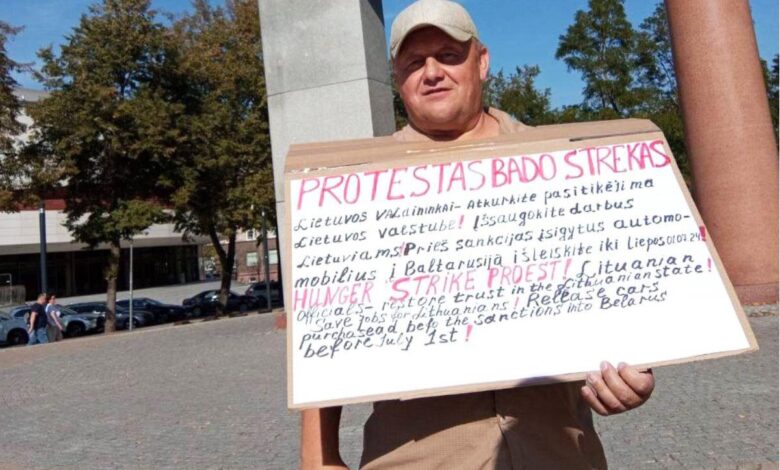 PROTESTAS BADO STREKAS
Lietuvos VALdininkAi- Atkurkite pasitikėjima
Lietuvos valstube! Išsaugokite darbus
Lietuviams! Prieš sankcijas įsigytus automo-
mobilius į Baltarusiją išleiskite iki Liepos 01.07.24!
HUNGER STRIKE PROEST! Lithuanian
Officials - restore trust in the Lithuanian state!
Save jobs for Lithuanians! Release cars
purchasead befo the sanctions into Belarus
before July 1st!